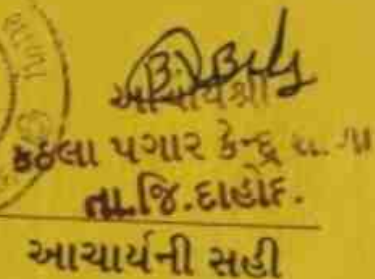 આચાર્યશ્રી
કઠલા પગાર કેન્દ્ર શાળા
તા.જિ.દાહોદ.
આચાર્યની સહી